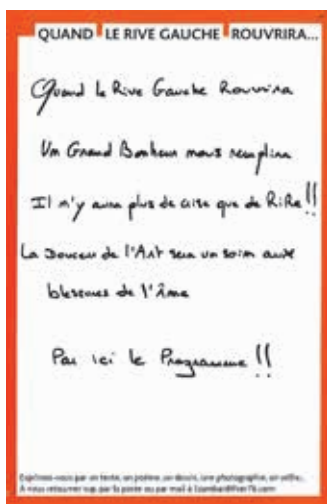 QUAND LE RIVE GAUCHE ROUVRIRA...
Quand le Rive Gauche Rouvrira
Un Grand Bonheur nous remplira
Il n'y aura plus de crise que de RiRe !!
La Douceur de l'Art sera un soin aux
blessures de l'Âme
Par ici le Programme !!
Exprimez-vous par un texte, un poème, un dessin, une photographie, un collage...
À nous retourner svp, par la poste ou par mail à